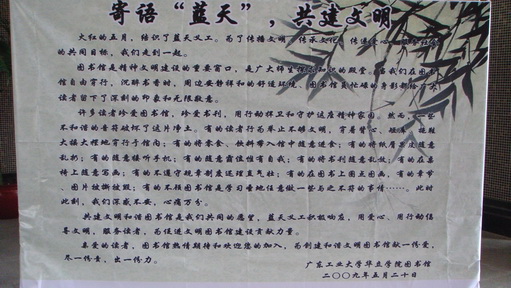 寄语“蓝天”，共建文明
火红的五月，结识了蓝天义工。为了传播文明、传承文化、传递爱心
的共同目标，我们走到一起。
图书馆是精神文明建设的重要窗口，是广大师生 知识的殿堂。当我们在图书
馆自由穿行，沉醉书香时，周边安静祥和的舒适环境，图书馆员忙碌的身影都给
读者留下了深刻的印象和无限敬意。
许多读者珍爱图书馆，珍爱书刊，用行动捍卫和守护这座精神家园。然而，一些
不和谐的音符破坏了这片净土。有的读者行为举止不够文明，穿着背心、拖鞋
大摇大摆地穿行于馆内；有的将零食、饮料带入馆中随意进食；有的纸屑
乱扔；有的随意接听手机；有的随意霸位唯有自我；有的将书刊随意乱放；有的在桌
椅上随意写画；有的不遵守规章制度还理直气壮；有的在图书上圈点画，有的章节
、图片被撕被毁；有的不顾图书馆是学习圣地任意做一些与之不符的事情……此时
此刻，我们深感不安，心痛万分。
共建文明和谐图书馆是我们共同的愿望，蓝天义工积极响应，用爱心、用行动倡
导文明，服务读者，为促进文明图书馆建设贡献力量。
亲爱的读者，图书馆热情期待和欢迎您的加入，为创建和谐文明图书馆献一份爱，
尽一份责，出一份力。
广东工业大学华立学院图书馆
二〇〇九年五月二十日